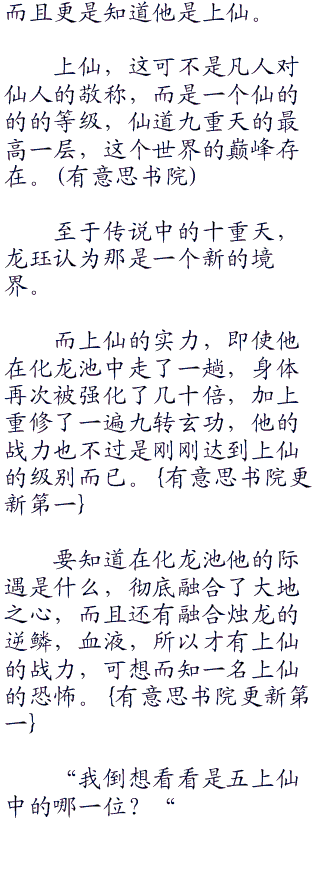 而且更是知道他是上仙。
上仙，这可不是凡人对
仙人的敬称，而是一个仙的
的的等级，仙道九重天的最
高一层，这个世界的巅峰存
在。(有意思书院)
至于传说中的十重天，
龙珏认为那是一个新的境
界。
而上仙的实力，即使他
在化龙池中走了一趟，身体
再次被强化了几十倍，加上
重修了一遍九转玄功，他的
战力也不过是刚刚达到上仙
的级别而已。{有意思书院更
新第一}
要知道在化龙池他的际
遇是什么，彻底融合了大地
之心，而且还有融合烛龙的
逆鳞，血液，所以才有上仙
的战力，可想而知一名上仙
的恐怖。{有意思书院更新第
一}
“我倒想看看是五上仙
中的哪一位？“